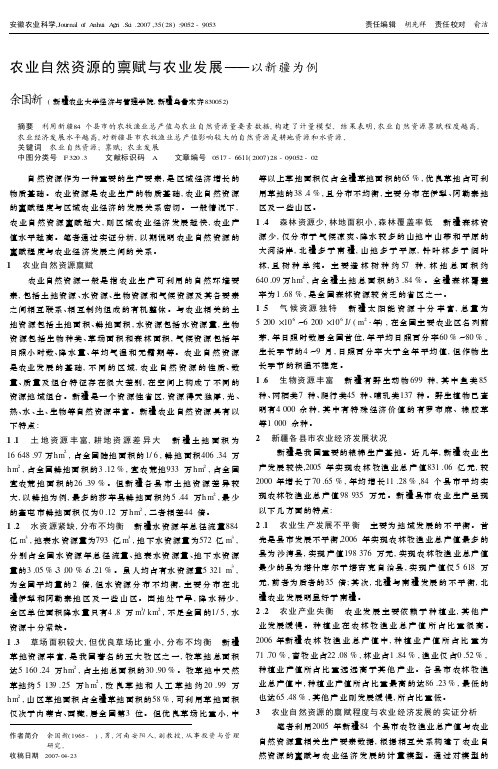 安徽农业科学,Journal of Anhui Agri.Sci.2007,35(28):9052-9053
责任编辑 胡先祥 责任校对 俞洁
农业自然资源的禀赋与农业发展——以新疆为例
余国新 (新疆农业大学经济与管理学院,新疆乌鲁木齐830052)
摘要 利用新疆84个县市的农牧渔业总产值与农业自然资源量要素数据,构建了计量模型。结果表明,农业自然资源禀赋程度越高,
农业经济发展水平越高,对新疆县市农牧渔业总产值影响较大的自然资源是耕地资源和水资源。
关键词 农业自然资源;禀赋;农业发展
中图分类号 F320.3 文献标识码 A 文章编号 0517-6611(2007)28-09052-02
自然资源作为一种重要的生产要素,是区域经济增长的
物质基础。农业资源是农业生产的物质基础,农业自然资源
的禀赋程度与区域农业经济的发展关系密切。一般情况下,
农业自然资源禀赋越大,则区域农业经济发展越快,农业产
值水平越高。笔者通过实证分析,以期说明农业自然资源的
禀赋程度与农业经济发展之间的关系。
1 农业自然资源禀赋
农业自然资源一般是指农业生产可利用的自然环境要
素,包括土地资源、水资源、生物资源和气候资源及其各要素
之间相互联系、相互制约组成的有机整体。与农业相关的土
地资源包括土地面积、耕地面积,水资源包括水资源量,生物
资源包括生物种类、草场面积和森林面积,气候资源包括年
日照小时数、降水量、年均气温和无霜期等。农业自然资源
是农业发展的基础,不同的区域,农业自然资源的性质、数
量、质量及组合特征存在很大差别,在空间上构成了不同的
资源地域组合。新疆是一个资源性省区,资源得天独厚,光、
热、水、土、生物等自然资源丰富。新疆农业自然资源具有以
下特点:
1.1 土地资源丰富,耕地资源差异大 新疆土地面积为
16 648.97万hm²,占全国陆地面积的1/6,耕地面积406.34万
hm²,占全国耕地面积的3.12%,宜农荒地933万hm²,占全国
宜农荒地面积的26.39%。但新疆各县市土地资源差异较
大,以耕地为例,最多的莎车县耕地面积约5.44万hm²,最少
的奎屯市耕地面积仅为0.12万hm²,二者相差44倍。
1.2 水资源紧缺,分布不均衡 新疆水资源年总径流量884
亿m³,地表水资源量为793亿m³,地下水资源量为572亿m³,
分别占全国水资源年总径流量、地表水资源量、地下水资源
量的3.05%、3.00%、6.21%。虽人均占有水资源量5 321 m³,
为全国平均量的2倍,但水资源分布不均衡,主要分布在北
疆伊犁和阿勒泰地区及一些山区。因地处干旱,降水稀少,
全区单位面积降水量只有4.8万m³/km²,不足全国的1/5,水
资源十分紧缺。
1.3 草场面积较大,但优良草场比重小,分布不均衡 新疆
草地资源丰富,是我国著名的五大牧区之一,牧草地总面积
达5 160.24万hm²,占土地总面积的30.90%。牧草地中天然
草地约5 139.25万hm²,改良草地和人工草地约20.99万
hm²,山区草地面积占全疆草地面积的58%,可利用草地面积
仅次于内蒙古、西藏,居全国第3位。但优良草场比重小,中
作者简介 余国新(1965-),男,河南安阳人,副教授,从事投资与管理
研究。
收稿日期 2007-04-23
等以上草地面积仅占全疆草地面积的65%,优良草地占可利
用草地的38.4%,且分布不均衡,主要分布在伊犁、阿勒泰地
区及一些山区。
1.4 森林资源少,林地面积小,森林覆盖率低 新疆森林资
源少,仅分布于气候凉爽、降水较多的山地中山带和平原的
大河沿岸,北疆多于南疆,山地多于平原,针叶林多于阔叶
林,且树种单纯。主要造林树种约57种,林地总面积约
640.09万hm²,占全疆土地总面积的3.84%。全疆森林覆盖
率为1.68%,是全国森林资源较贫乏的省区之一。
1.5 气候资源独特 新疆太阳能资源十分丰富,总量为
5 200×10⁶~6 200×10⁶ J/(m²·年),在全国主要农业区名列前
茅,年日照时数居全国首位,年平均日照百分率60%~80%,
生长季节的4~9月,日照百分率大于全年平均值,但作物生
长季节的积温不稳定。
1.6 生物资源丰富 新疆有野生动物699种,其中鱼类85
种、两栖类7种、爬行类45种、哺乳类137种。野生植物已查
明有4 000余种,其中有特殊经济价值的有罗布麻、橡胶草
等1 000余种。
2 新疆各县市农业经济发展状况
新疆是我国重要的粮棉生产基地。近几年,新疆农业生
产发展较快,2005年实现农林牧渔业总产值831.06亿元,较
2000年增长了70.65%,年均增长11.28%,84个县市平均实
现农林牧渔业总产值98 935万元。新疆县市农业生产呈现
以下几方面的特点:
2.1 农业生产发展不平衡 主要为地域发展的不平衡。首
先是县市发展不平衡,2006年实现农林牧渔业总产值最多的
县为沙湾县,实现产值198 376万元,实现农林牧渔业总产值
最少的县为塔什库尔干塔吉克自治县,实现产值仅5 618万
元,前者为后者的35倍;其次,北疆与南疆发展的不平衡,北
疆农业发展明显好于南疆。
2.2 农业产业失衡 农业发展主要依赖于种植业,其他产
业发展缓慢。种植业在农林牧渔业总产值所占比重很高。
2006年新疆农林牧渔业总产值中,种植业产值所占比重为
71.70%,畜牧业占22.08%,林业占1.84%,渔业仅占0.52%,
种植业产值所占比重远远高于其他产业。各县市农林牧渔
业总产值中,种植业产值所占比重最高的达86.23%,最低的
也达65.48%,其他产业则发展缓慢,所占比重低。
3 农业自然资源的禀赋程度与农业经济发展的实证分析
笔者利用2005年新疆84个县市农牧渔业总产值与农业
自然资源量相关生产要素数据,根据相互关系构建了农业自
然资源的禀赋与农业经济发展的计量模型。通过对模型的